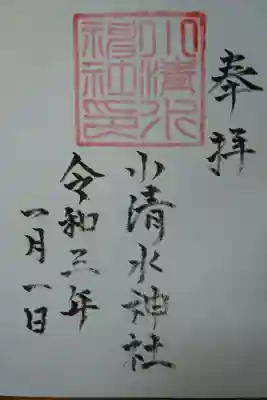 奉拝
小清水神社
小清水神社印
令和三年
一月一日